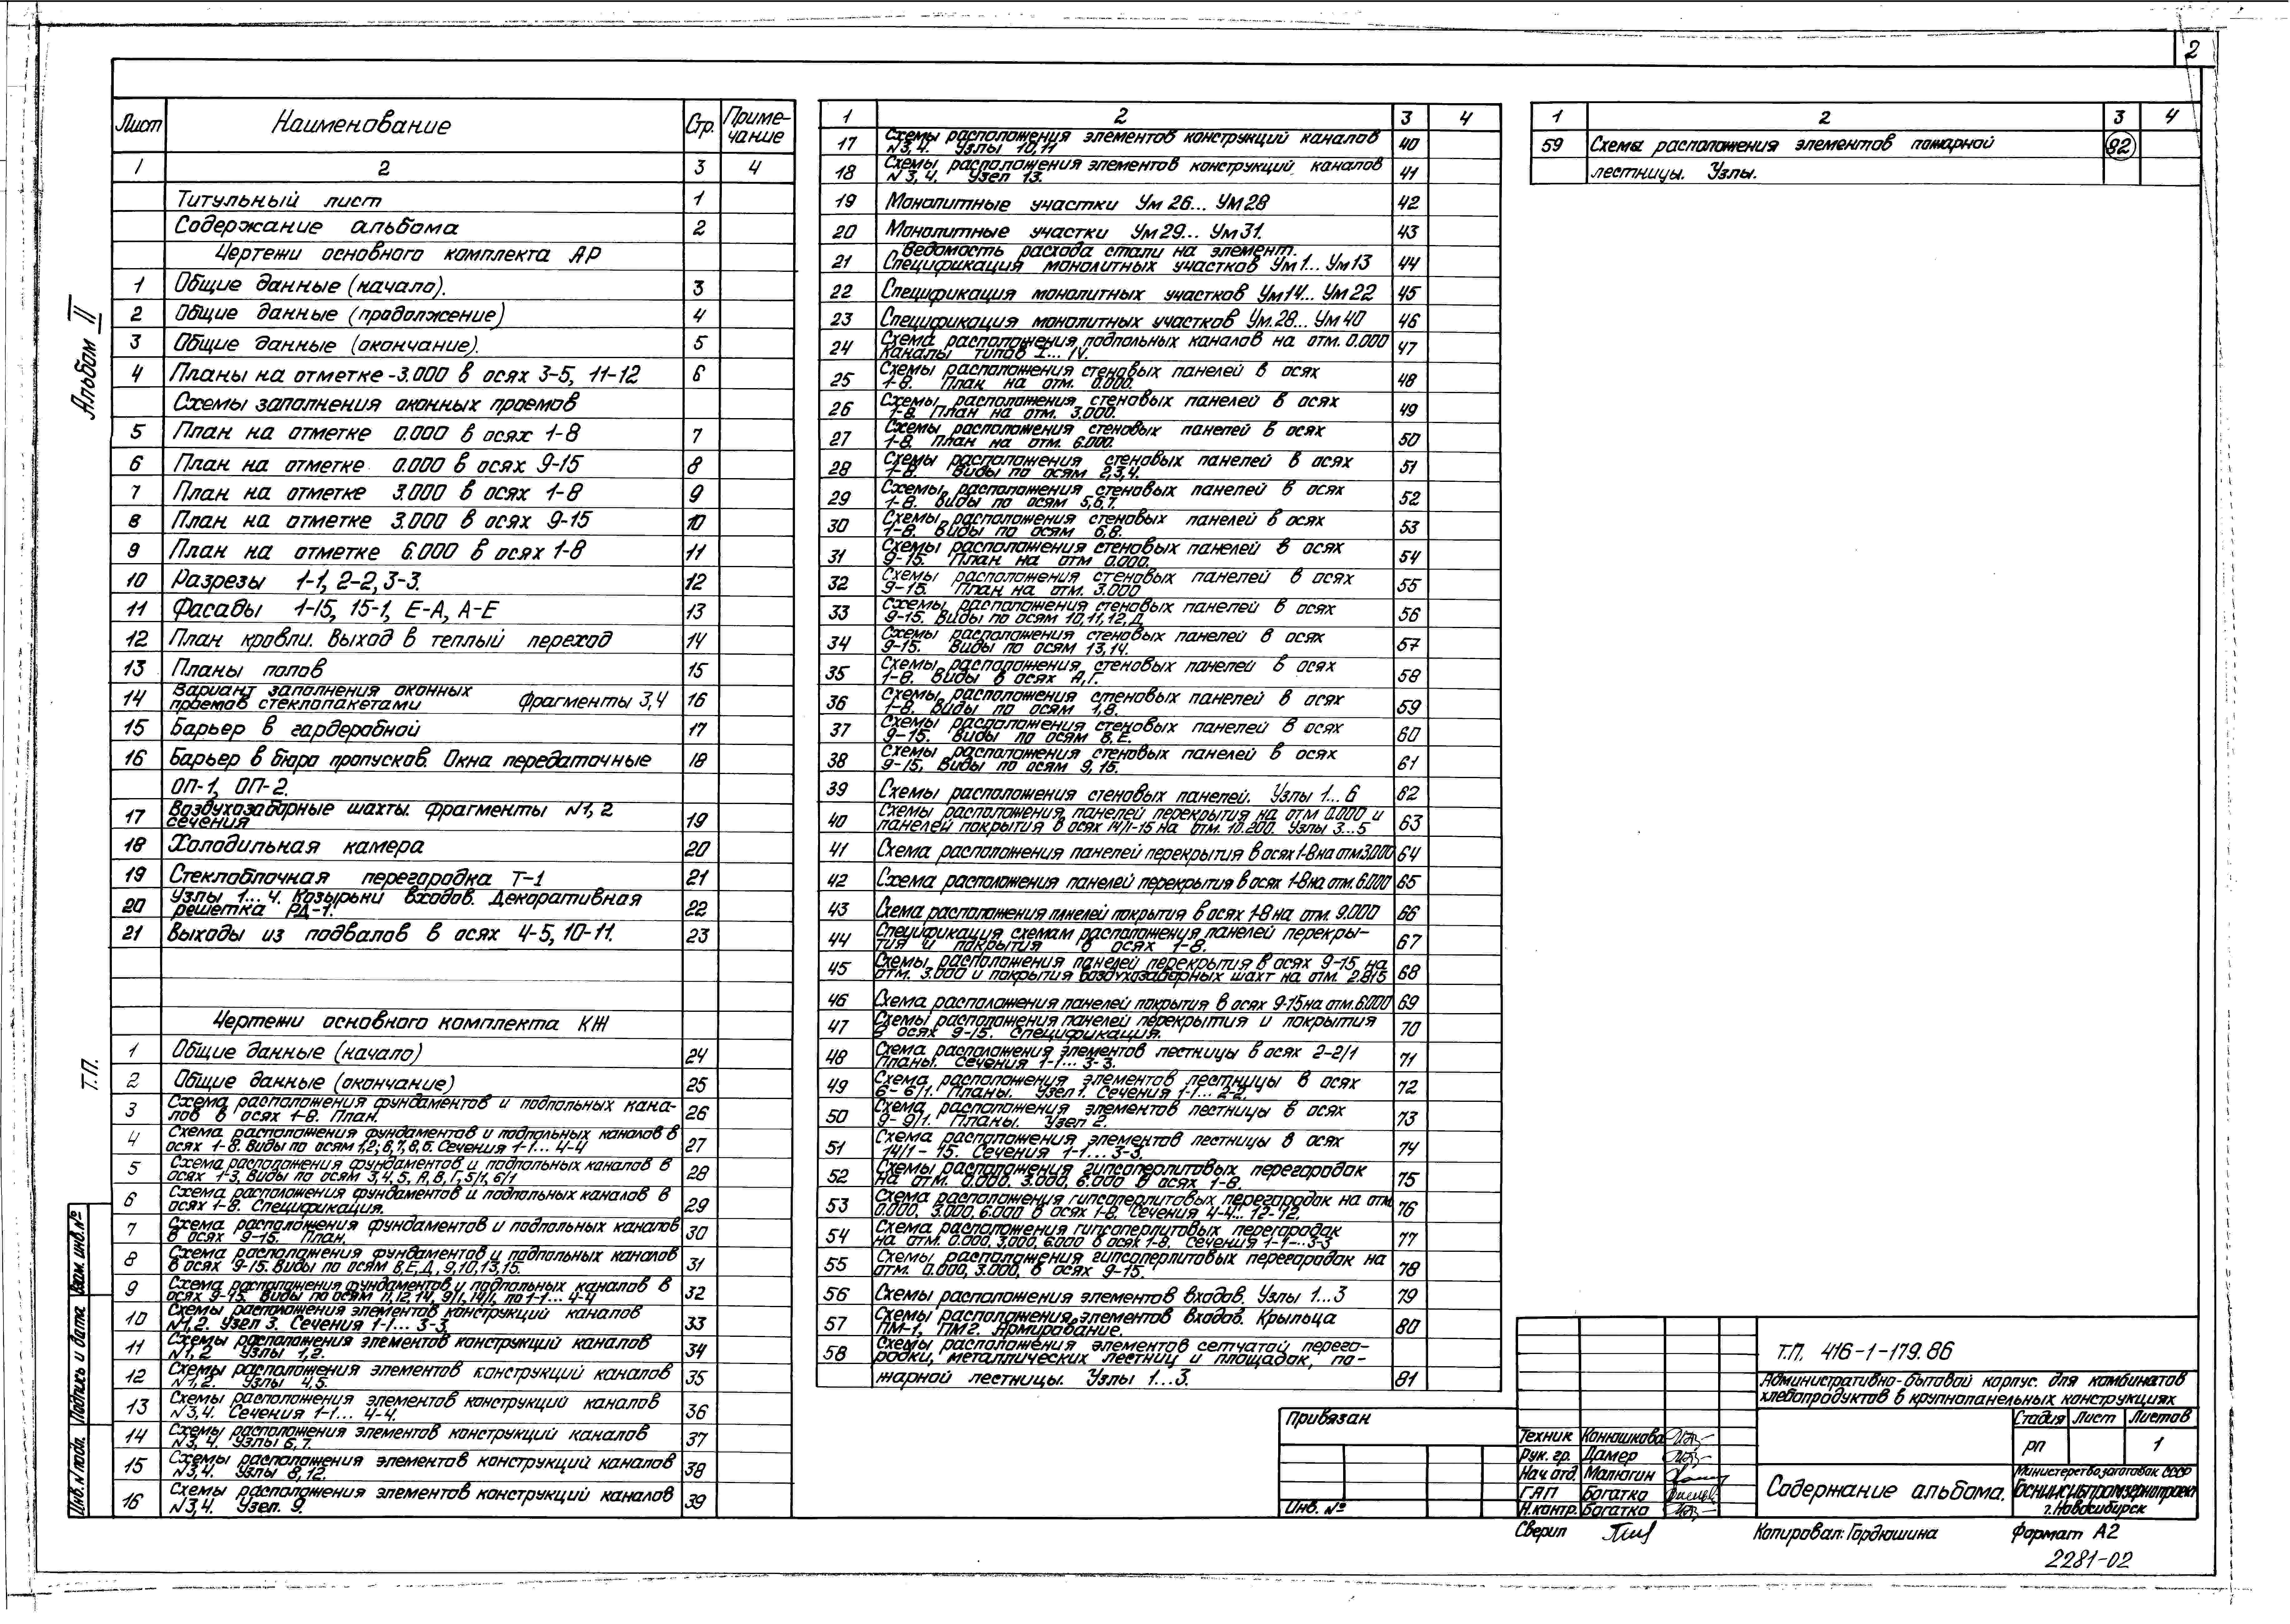 2
Альбом II
Т.П.
Лист Наименование Стр. Приме-
чание
1 2 3 4
Титульный лист 1
Содержание альбома 2
Чертежи основного комплекта АР
1 Общие данные (начало). 3
2 Общие данные (продолжение) 4
3 Общие данные (окончание). 5
4 Планы на отметке -3.000 в осях 3-5, 11-12 6
Схемы заполнения оконных проемов
5 План на отметке 0.000 в осях 1-8 7
6 План на отметке 0.000 в осях 9-15 8
7 План на отметке 3.000 в осях 1-8 9
8 План на отметке 3.000 в осях 9-15 10
9 План на отметке 6.000 в осях 1-8 11
10 Разрезы 1-1, 2-2, 3-3. 12
11 Фасады 1-15, 15-1, Е-А, А-Е 13
12 План кровли. Выход в теплый переход 14
13 Планы полов 15
14 Вариант заполнения оконных Фрагменты 3,4 16
проемов стеклопакетами
15 Барьер в гардеробной 17
16 Барьер в бюро пропусков. Окна передаточные 18
ОП-1, ОП-2.
17 Воздухозаборные шахты. Фрагменты N1, 2 19
сечения
18 Холодильная камера 20
19 Стеклоблочная перегородка Т-1 21
20 Узлы 1... 4. Козырьки входов. Декоративная 22
решетка РД-1.
21 Выходы из подвалов в осях 4-5, 10-11. 23
Чертежи основного комплекта КЖ
1 Общие данные (начало) 24
2 Общие данные (окончание) 25
3 Схема расположения фундаментов и подпольных кана- 26
лов в осях 1-8. План.
4 Схема расположения фундаментов и подпольных каналов в 27
осях 1-8. Виды по осям 1,2; 6,7,8,Б. Сечения 1-1... 4-4
5 Схема расположения фундаментов и подпольных каналов в 28
осях 1-3. Виды по осям 3,4,5, А,В,Г,5/1, 6/1
6 Схема расположения фундаментов и подпольных каналов в 29
осях 1-8. Спецификация.
7 Схема расположения фундаментов и подпольных каналов 30
в осях 9-15. План.
8 Схема расположения фундаментов и подпольных каналов 31
в осях 9-15. Виды по осям В,Е,Д, 9,10,13,15.
9 Схема расположения фундаментов и подпольных каналов в 32
осях 9-15. Виды по осям 11,12,14, 9/1, 14/1, по 1-1... 4-4
10 Схемы расположения элементов конструкций каналов 33
N1,2. Узел 3. Сечения 1-1... 3-3.
11 Схемы расположения элементов конструкций каналов 34
N1,2 Узлы 1,2.
12 Схемы расположения элементов конструкций каналов 35
N1,2. Узлы 4,5.
13 Схемы расположения элементов конструкций каналов 36
N3,4. Сечения 1-1... 4-4.
14 Схемы расположения элементов конструкций каналов 37
N3,4. Узлы 6,7.
15 Схемы расположения элементов конструкций каналов 38
N3,4. Узлы 8,12.
16 Схемы расположения элементов конструкций каналов 39
N3,4. Узел. 9.
1 2 3 4
17 Схемы расположения элементов конструкций каналов 40
N3,4. Узлы 10,11
18 Схемы расположения элементов конструкций каналов 41
N3,4. Узел 13.
19 Монолитные участки Ум 26... Ум28 42
20 Монолитные участки Ум29... Ум31. 43
21 Ведомость расхода стали на элемент. 44
Спецификация монолитных участков Ум1... Ум13
22 Спецификация монолитных участков Ум14... Ум22 45
23 Спецификация монолитных участков Ум.28... Ум40 46
24 Схема расположения подпольных каналов на отм. 0.000 47
Каналы типов I... IV.
25 Схемы расположения стеновых панелей в осях 48
1-8. План на отм. 0.000.
26 Схемы расположения стеновых панелей в осях 49
1-8. План на отм. 3.000.
27 Схемы расположения стеновых панелей в осях 50
1-8. План на отм. 6.000.
28 Схемы расположения стеновых панелей в осях 51
1-8. Виды по осям 2,3,4.
29 Схемы расположения стеновых панелей в осях 52
1-8. Виды по осям 5,6,7.
30 Схемы расположения стеновых панелей в осях 53
1-8. Виды по осям 6,8.
31 Схемы расположения стеновых панелей в осях 54
9-15. План на отм 0.000.
32 Схемы расположения стеновых панелей в осях 55
9-15. План на отм. 3.000
33 Схемы расположения стеновых панелей в осях 56
9-15. Виды по осям 10,11,12,Д
34 Схемы расположения стеновых панелей в осях 57
9-15. Виды по осям 13,14.
35 Схемы расположения стеновых панелей в осях 58
1-8. Виды в осях А,Г.
36 Схемы расположения стеновых панелей в осях 59
1-8. Виды по осям 1,8.
37 Схемы расположения стеновых панелей в осях 60
9-15. Виды по осям В,Е.
38 Схемы расположения стеновых панелей в осях 61
9-15, Виды по осям 9,15.
39 Схемы расположения стеновых панелей. Узлы 1... 6 62
40 Схемы расположения панелей перекрытия на отм 0.000 и 63
панелей покрытия в осях 14/1-15 на отм. 10.200. Узлы 3...5
41 Схема расположения панелей перекрытия в осях 1-8 на отм3.000 64
42 Схема расположения панелей перекрытия в осях 1-8 на отм. 6.000 65
43 Схема расположения пнелей покрытия в осях 1-8 на отм. 9.000 66
44 Спецификация схемам расположения панелей перекры- 67
тия и покрытия в осях 1-8.
45 Схемы расположения панелей перекрытия в осях 9-15 на 68
отм. 3.000 и покрытия воздухозаборных шахт на отм. 2.815
46 Схема расположения панелей покрытия в осях 9-15 на отм.6.000 69
47 Схемы расположения панелей перекрытия и покрытия 70
в осях 9-15. Спецификация.
48 Схема расположения элементов лестницы в осях 2-2/1 71
Планы. Сечения 1-1... 3-3.
49 Схема расположения элементов лестницы в осях 72
6-6/1. Планы. Узел 1. Сечения 1-1... 2-2.
50 Схема расположения элементов лестницы в осях 73
9-9/1. Планы. Узел 2.
51 Схема расположения элементов лестницы в осях 74
14/1-15. Сечения 1-1... 3-3.
52 Схемы расположения гипсоперлитовых перегородак 75
на отм. 0.000, 3.000, 6.000 в осях 1-8.
53 Схема расположения гипсоперлитовых перегородок на отм 76
0.000, 3.000, 6.000 в осях 1-8. Сечения 4-4... 12-12.
54 Схема расположения гипсоперлитовых перегородак 77
на отм. 0.000, 3.000, 6.000 в осях 1-8. Сечения 1-1...3-3
55 Схемы расположения гипсоперлитовых перегородак на 78
отм. 0.000, 3.000, в осях 9-15.
56 Схемы расположения элементов входов. Узлы 1...3 79
57 Схемы расположения элементов входов. Крыльца 80
ПМ-1, ПМ2. Армирование.
58 Схемы расположения элементов сетчатой перего-
родки, металлических лестниц и площадок, по-
жарной лестницы. Узлы 1...3. 81
1 2 3 4
59 Схема расположения элементов пожарной 82
лестницы. Узлы.
Инв. N подл. Подпись и дата Взам. инв. №
Привязан
Инв. №
Т.П. 416-1-179.86
Административно-бытовой корпус. для комбинатов
хлебопродуктов в крупнопанельных конструкциях
Стадия Лист Листов
РП 1
Техник Конюшкова
Рук. гр. Дамер
Нач. отд. Малюгин
ГАП Богатко
Н.контр. Богатко
Содержание альбома.
Министерство заготовок СССР
г.Новосибирск
Сверил
Копировал: Гордюшина
Формат А2
2281-02